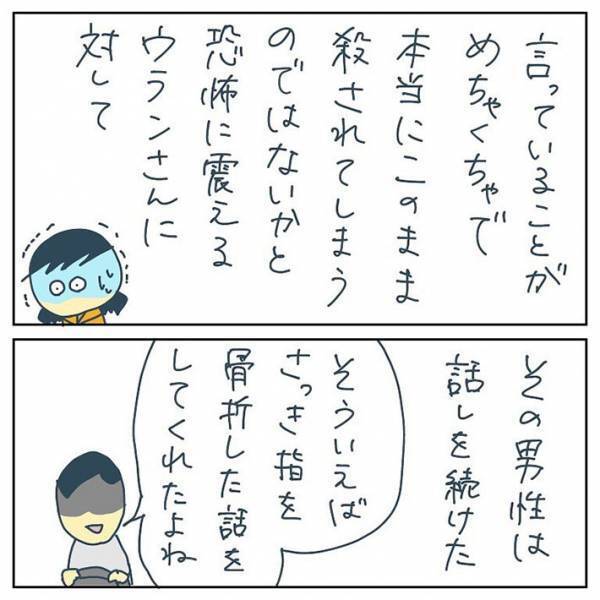 言っていることが
めちゃくちゃで
本当にこのまま
殺されてしまう
のではないかと
恐怖に震える
ウランさんに
対して
その男性は
話しを続けた
そういえば
さっき指を
骨折した話を
してくれたよね